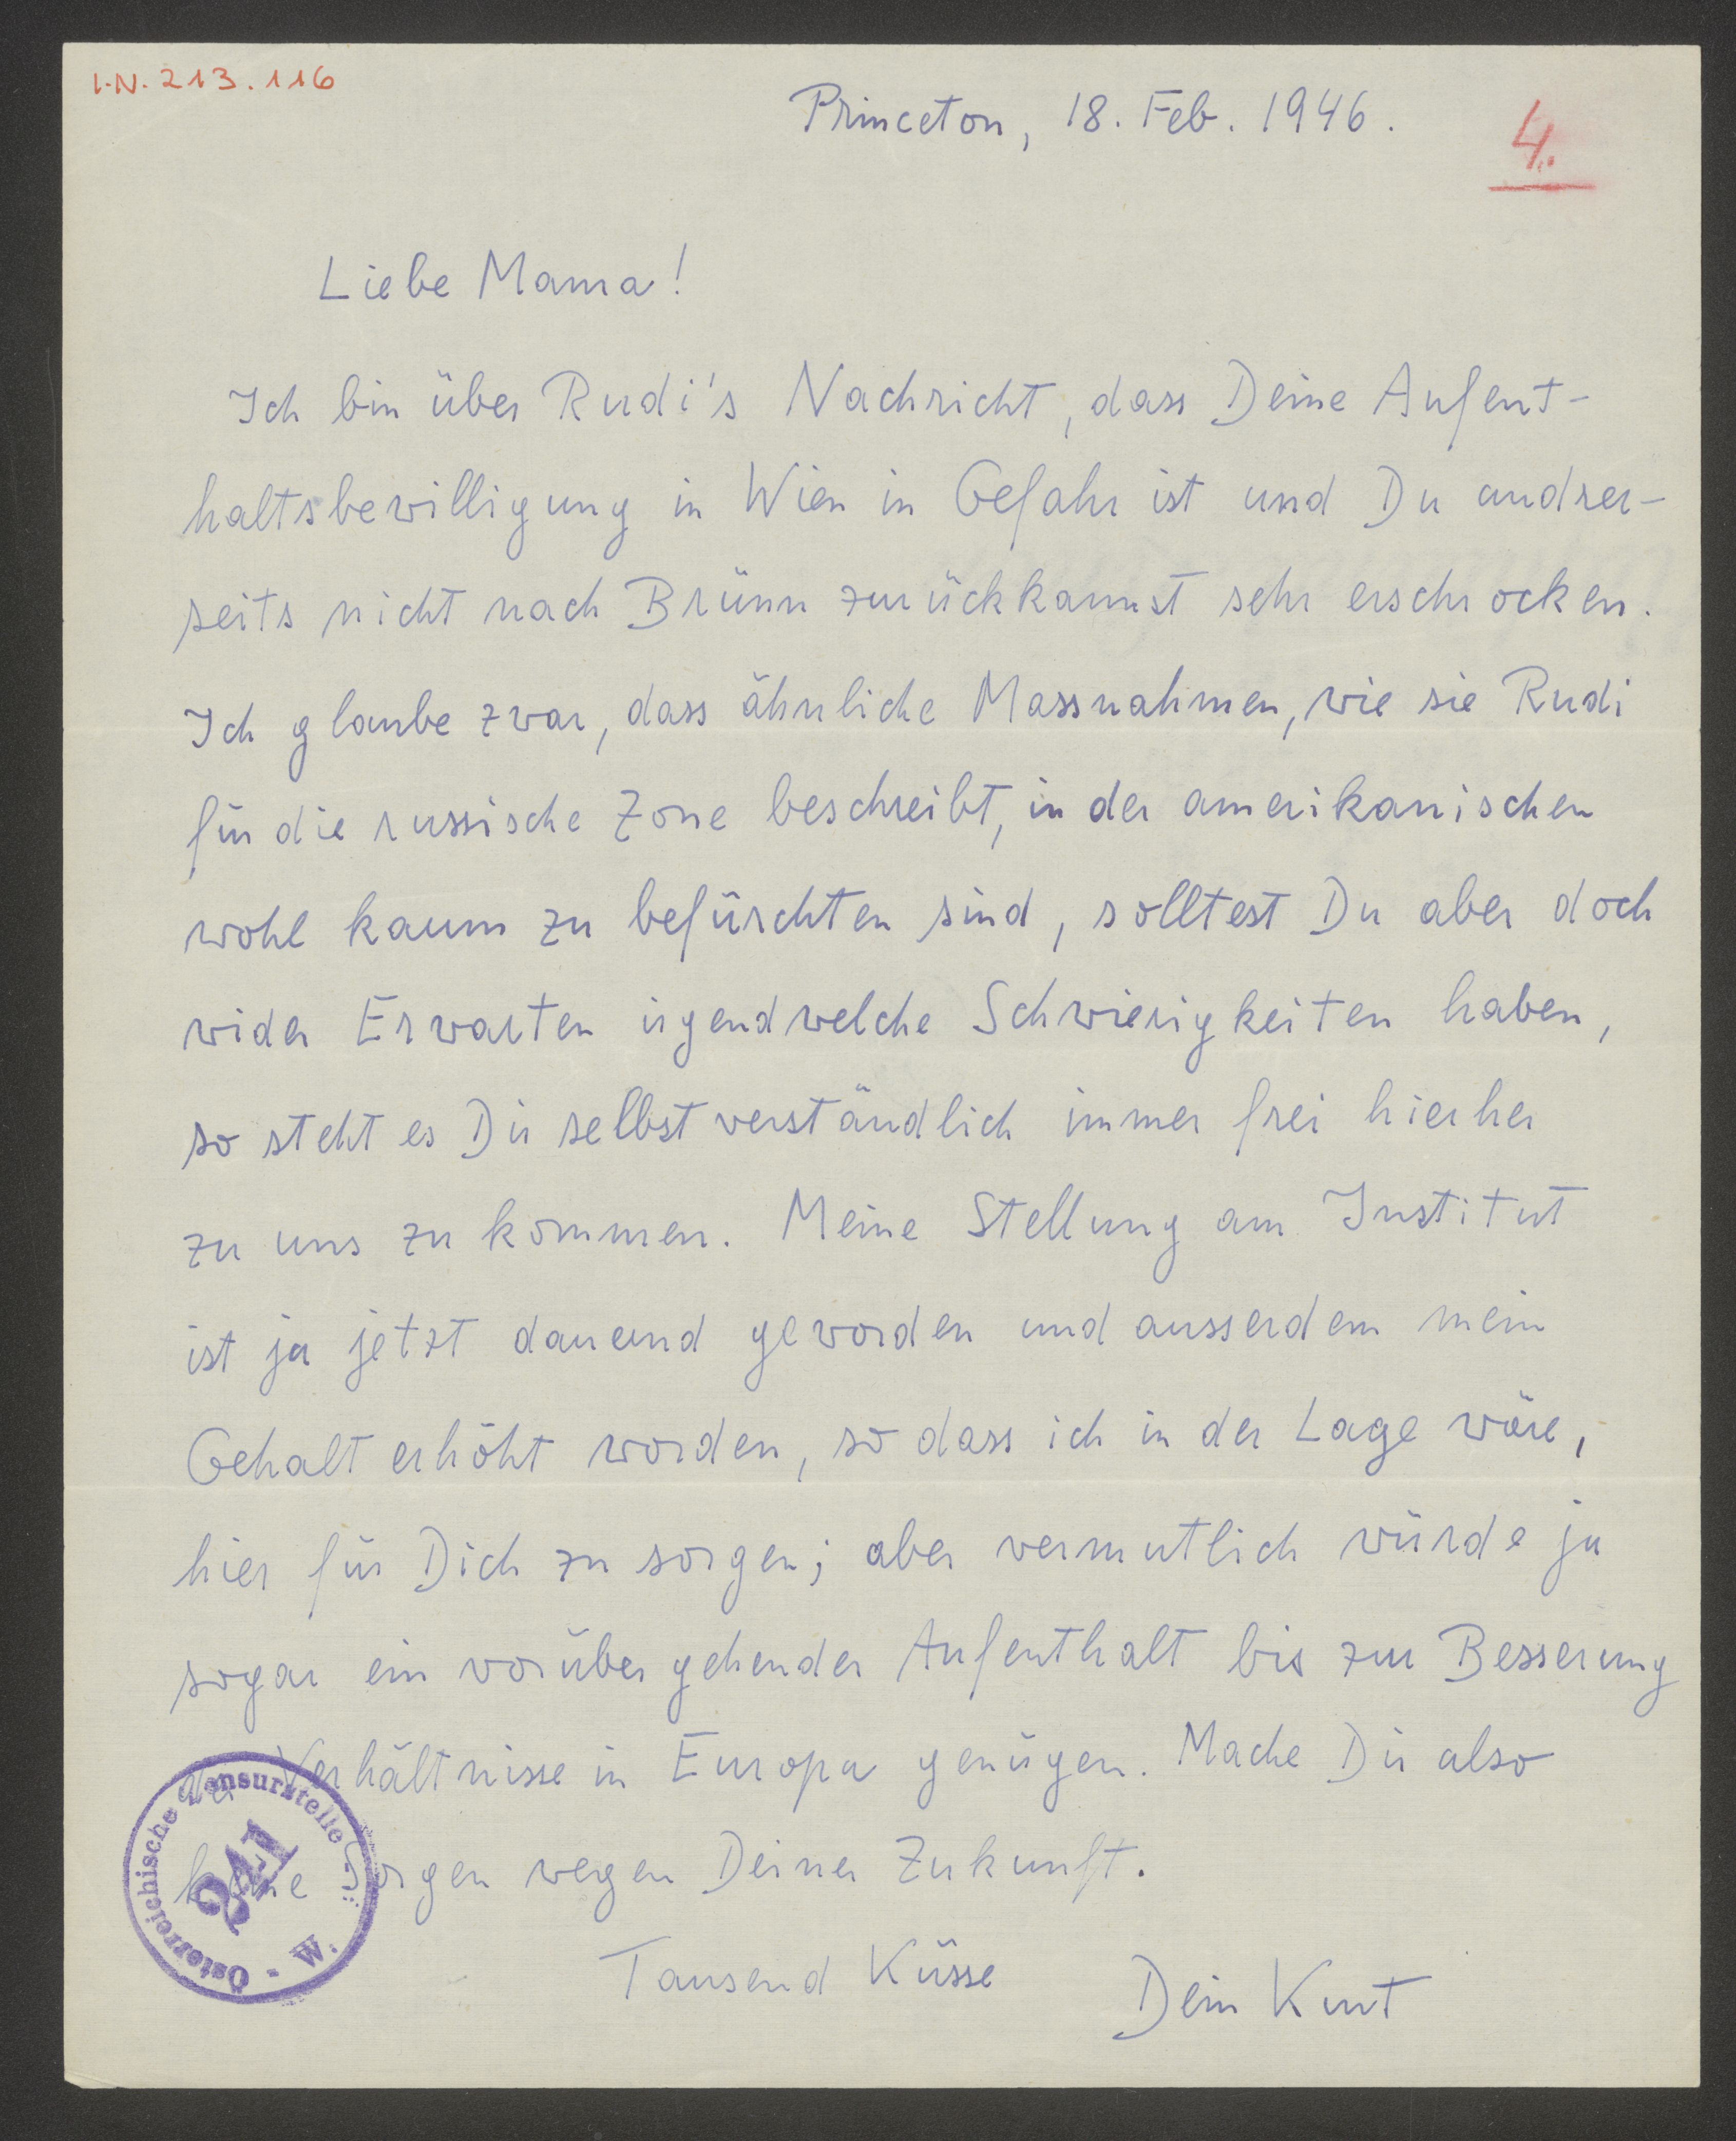 I.N. 213.116
Princeton, 18. Feb. 1946.
4.
Liebe Mama!
Ich bin über Rudi's Nachricht, dass Deine Aufent-
haltsbewilligung in Wien in Gefahr ist und Du andrer-
seits nicht nach Brünn zurückkannst sehr erschrocken.
Ich glaube zwar, dass ähnliche Massnahmen, wie sie Rudi
für die russische Zone beschreibt, in der amerikanischen
wohl kaum zu befürchten sind, solltest Du aber doch
wider Erwarten irgendwelche Schwierigkeiten haben,
so steht es Dir selbstverständlich immer frei hierher
zu uns zu kommen. Meine Stellung am Institut
ist ja jetzt dauernd geworden und ausserdem mein
Gehalt erhöht worden, so dass ich in der Lage wäre,
hier für Dich zu sorgen; aber vermutlich würde ja
sogar ein vorübergehender Aufenthalt bis zur Besserung
der Verhältnisse in Europa genügen. Mache Dir also
keine Sorgen wegen Deiner Zukunft.
Tausend Küsse Dein Kurt
Österreichische Zensurstelle
241
W.